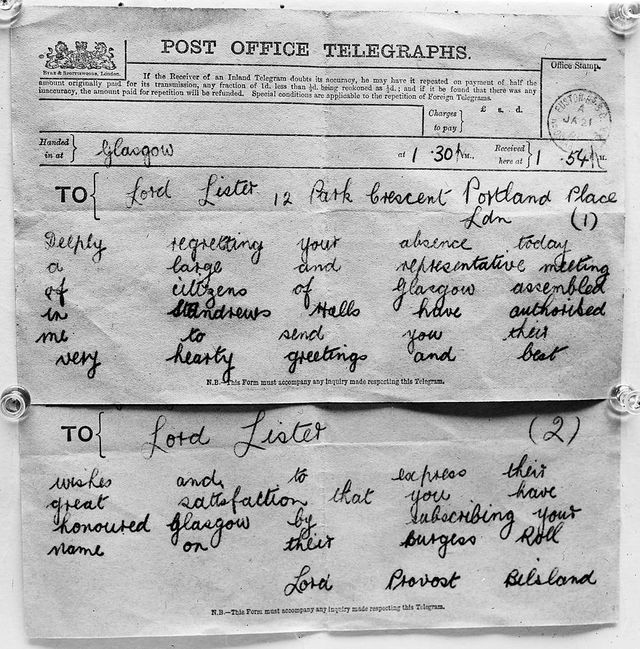 POST OFFICE TELEGRAPHS.
Eyre & Spottiswoode, London.
If the Receiver of an Inland Telegram doubts its accuracy, he may have it repeated on payment of half the
amount originally paid for its transmission, any fraction of 1d. less than ½d. being reckoned as ½d.; and if it be found that there was any
inaccuracy, the amount paid for repetition will be refunded. Special conditions are applicable to the repetition of Foreign Telegrams.
Office Stamp.
JA 21
Charges to pay } £ s. d.
Handed in at } Glasgow at 1.30 P.M., Received here at } 1.54 P.M.
TO { Lord Lister 12 Park Crescent Portland Place
Ldn (1)
Deeply regretting your absence today
a large and representative meeting
of citizens of Glasgow assembled
in St Andrews Halls have authorised
me to send you their
very hearty greetings and best
N.B.—This Form must accompany any inquiry made respecting this Telegram.
TO { Lord Lister (2)
wishes and to express their
great satisfaction that you have
honoured Glasgow by subscribing your
name on their Burgess Roll
Lord Provost Bilsland
N.B.—This Form must accompany any inquiry made respecting this Telegram.